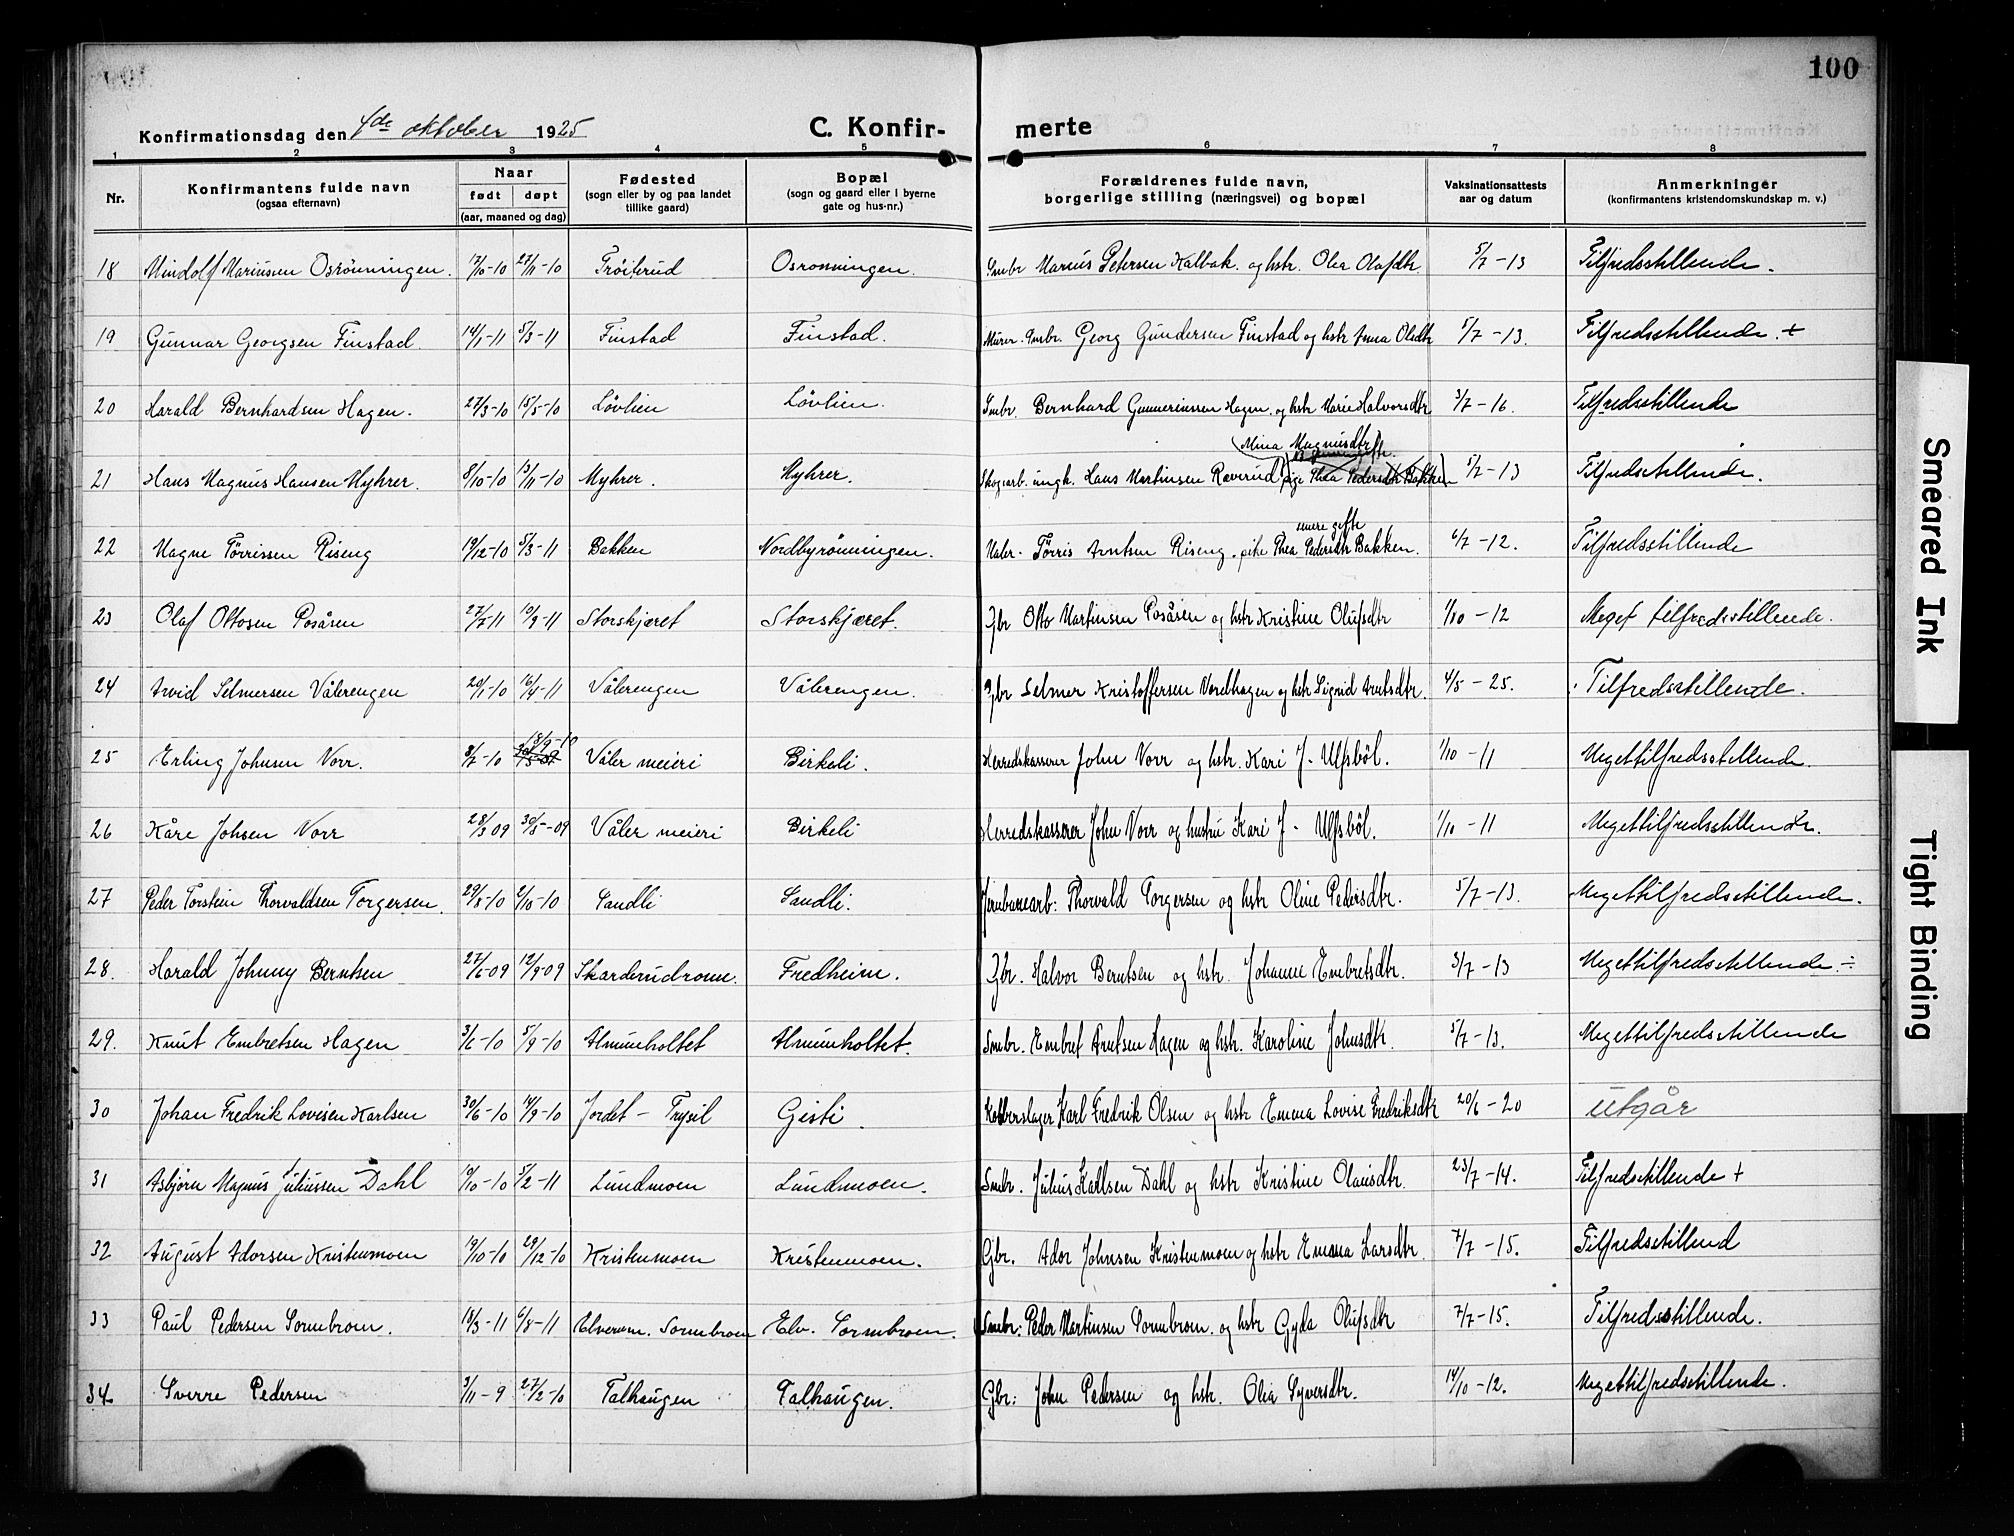 100
Konfirmationsdag den 4de oktober 1925 C. Konfir- merte
1 2 3 4 5 6 7 8
Nr. Konfirmantens fulde navn (ogsaa efternavn) Naar født døpt (aar, maaned og dag) Fødested (sogn eller by og paa landet tillike gaard) Bopæl (sogn og gaard eller i byerne gate og hus-nr.) Forældrenes fulde navn, borgerlige stilling (næringsvei) og bopæl Vaksinationsattests aar og datum Anmerkninger (konfirmantens kristendomskundskap m. v.)
18 Mindolf Mariussen Osrönningen. 17/10-10 27/11-10 Tröiterud Osronningen. Smbr Marius Petersen Kalbak. og hstr. Olea Olafdtr. 5/7-13 Tilfredsstillende.
19 Gunnar Georgsen Finstad. 14/1-11 5/3-11 Finstad Finstad. Murer. Smbr. Georg Gundersen Finstad og hstr Anna Olsdtr 5/7-13. Tilfredsstillende. +
20 Harald Bernhardsen Hagen. 27/3-10 15/5-10 Lövlien Lövlien. Smbr. Bernhard Gunneriussen Hagen. og hstr Marie Halvorsdtr 3/7-16. Tilfredsstillende
(Mina Magnusdtr
21 Hans Magnus Hansen Myhrer. 8/10-10 13/11-10 Myhrer. Myhrer. Skogsarb. ungk. Hans Martinsen Raverud pige Thea Pedersdtr Bakken 5/7-13 Tilfredsstillende.
senere gifte
22 Magne Törrissen Riseng 19/12-10 5/3-11 Bakken Nordbyrönningen. Maler. Törris Arntsen Riseng. pike Thea Pedersdtr Bakken. 6/7-12. Tilfredsstillende
23 Olaf Ottosen Posåsen 27/7-11 10/9-11 Storskjæret Storskjæret. Gbr Otto Martinsen Posåsen og hstr Kristine Olufsdtr 1/10-12 Meget tilfredsstillende.
24 Arvid Selmersen Vålerengen 20/1-10 16/4-11 Vålerengen Vålerengen. Gbr Selmer Kristoffersen Nordhagen og hstr Sigrid Arntsdtr. 4/5-25. Tilfredsstillende.
18/9-10
25 Erling Johnsen Vorr. 8/7-10 Våler meieri Birkeli. Herredskasserer John Vorr og hstr. Kari J. Ulfsböl. 1/10-11 Megettilfredsstillende.
26 Kåre Johsen Vorr 28/3 09 30/5-09 Våler meieri Birkeli Herredskasserer John Vorr og hustru Kari J. Ulfsböl. 1/10-11 Megettilfredsstillende.
27 Peder Torstein Thorvaldsen Torgersen. 29/8-10 2/10-10 Sandli Sandli. Jernbanearb: Thorvald Torgersen og hstr Oline Pedersdtr. 5/7-13. Megettilfredsstillende.
28. Harald Johnny Berntsen 27/6-09 12/9-09 Skarderudroan. Fredheim. Gbr. Halvor Berntsen og hstr. Johanne Embretsdtr. 3/7-13 Megettilfredsstillende ÷
29. Knut Embretsen Hagen 3/6-10 5/9-10 Almunholtet Almunholtet. Smbr. Embret Arntsen Hagen og hstr. Karoline Johnsdtr. 5/7-13. Megettilfredsstillende
30 Johan Fredrik Lovisen Karlsen 30/6-10 14/9-10 Jordet - Trysil Gisti. Kobberslager Karl Fredrik Olsen og hstr Emma Lovise Fredriksdtr 20/6-20 utgår
31 Asbjörn Magnus Juliussen Dahl 10/10-10 5/2-11 Lundmoen Lundmoen. Smbr. Julius Karlsen Dahl og hstr Kristine Olausdtr. 23/7-14. Tilfredsstillende +
32 August Adorsen Kristenmoen 19/10-10 29/12-10 Kristenmoen Kristenmoen. Gbr. Ador Johnsen Kristenmoen og hstr Emma Larsdtr. 7/7-15. Tilfredsstillend
33 Paul Pedersen Sormbroen. 18/3-11 6/8-11 Elverum. Sormbroen Elv. Sormbroen. Smbr: Peder Martinsen Sormbroen. og hstr Gyda Olufsdtr 7/7-15. Tilfredsstillende.
34 Sverre Pedersen 3/11-9 27/2-10 Falhaugen Falhaugen. Gbr: John Pedersen og hstr. Olea Syversdtr. 14/10-12. Megettilfredsstillende.
Smeared Ink
Tight Binding